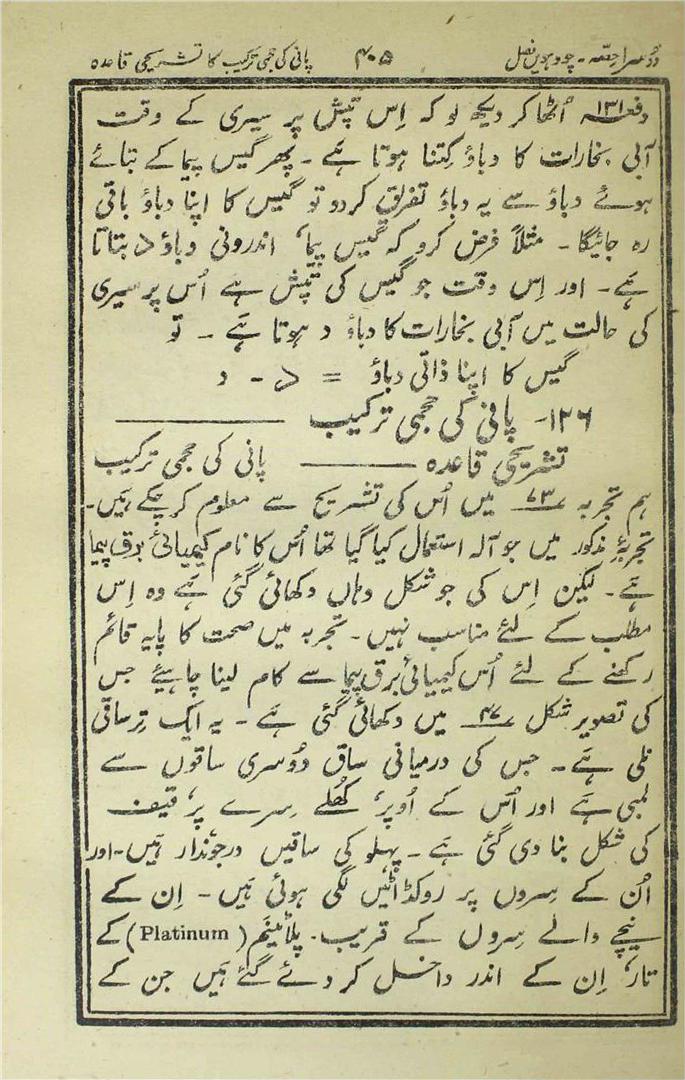 دوسرا حصہ - چودہویں فصل ۴۰۵ پانی کی حجمی ترکیب کا تشریحی قاعدہ
دفعہ ۱۳۱ اُٹھا کر دیکھ لو کہ اِس تپش پر سیری کے وقت
آبی بخارات کا دباؤ کِتنا ہوتا ہے ۔ پھر گیس پیما کے بتائے
ہوئے دباؤ سے یہ دباؤ تفریق کردو تو گیس کا اپنا دباؤ باقی
رہ جائیگا ۔ مثلاً فرض کرو کہ گیس پیما، اندرونی دباؤ د بتاتا
ہے ۔ اور اِس وقت جو گیس کی تپش ہے اُس پر سیری
کی حالت میں آبی بخارات کا دباؤ د ہوتا ہے ۔ تو
گیس کا اپنا ذاتی دباؤ = د - د
۱۲۶- پانی کی حجمی ترکیب
تشریحی قاعدہ ——— پانی کی حجمی ترکیب
ہم تجربہ ۷۳ میں اُس کی تشریح سے معلوم کر چکے ہیں۔
تجربۂ مذکور میں جو آلہ استعمال کیا گیا تھا اُس کا نام کیمیائی برق پیما
ہے ۔ لیکن اِس کی جو شکل وہاں دکھائی گئی ہے وہ اِس
مطلب کے لئے مناسب نہیں ۔ تجربہ میں صحت کا پایہ قائم
رکھنے کے لئے اُس کیمیائی برق پیما سے کام لینا چاہیئے جس
کی تصویر شکل ۴۷ میں دکھائی گئی ہے ۔ یہ ایک تِرساقی
نلی ہے ۔ جس کی درمیانی ساق دُوسری ساقوں سے
لمبی ہے اور اُس کے اُوپر، کھُلے سِرے پر، قیف
کی شکل بنا دی گئی ہے ۔ پہلو کی ساقیں درجوندار ہیں ۔ اور
اُن کے سِروں پر روکڈاٹیں لگی ہوئی ہیں ۔ اِن کے
نیچے والے سِروں کے قریب ۔ پلاٹینَم (Platinum) کے
تار، اِن کے اندر داخل کر دئے گئے ہیں جن کے